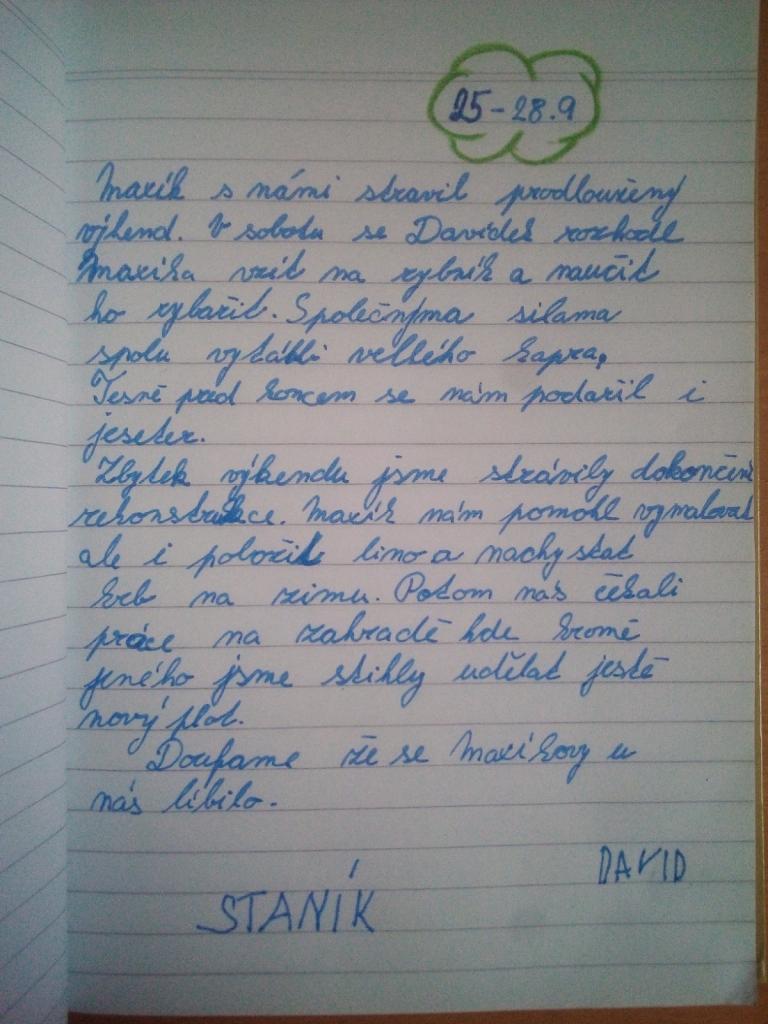 25-28.9
Maxík s námi stravil prodloužený
výkend. V sobotu se Davídek rozhodl
Maxíka vzít na rybník a naučit
ho rybařit. Společnýma silama
spolu vytáhli velkého kapra,
Tesně před koncem se nám podařil i
jeseter.
Zbytek výkendu jsme strávily dokončení
rekonstrukce. Maxík nám pomohl vymalovat
ale i položit lino a nachystat
krb na zimu. Potom nás čekali
práce na zahradě kde kromě
jiného jsme stihly udělat ještě
nový plot.
Doufame že se Maxíkovy u
nás líbilo.
DAVID
STANÍK